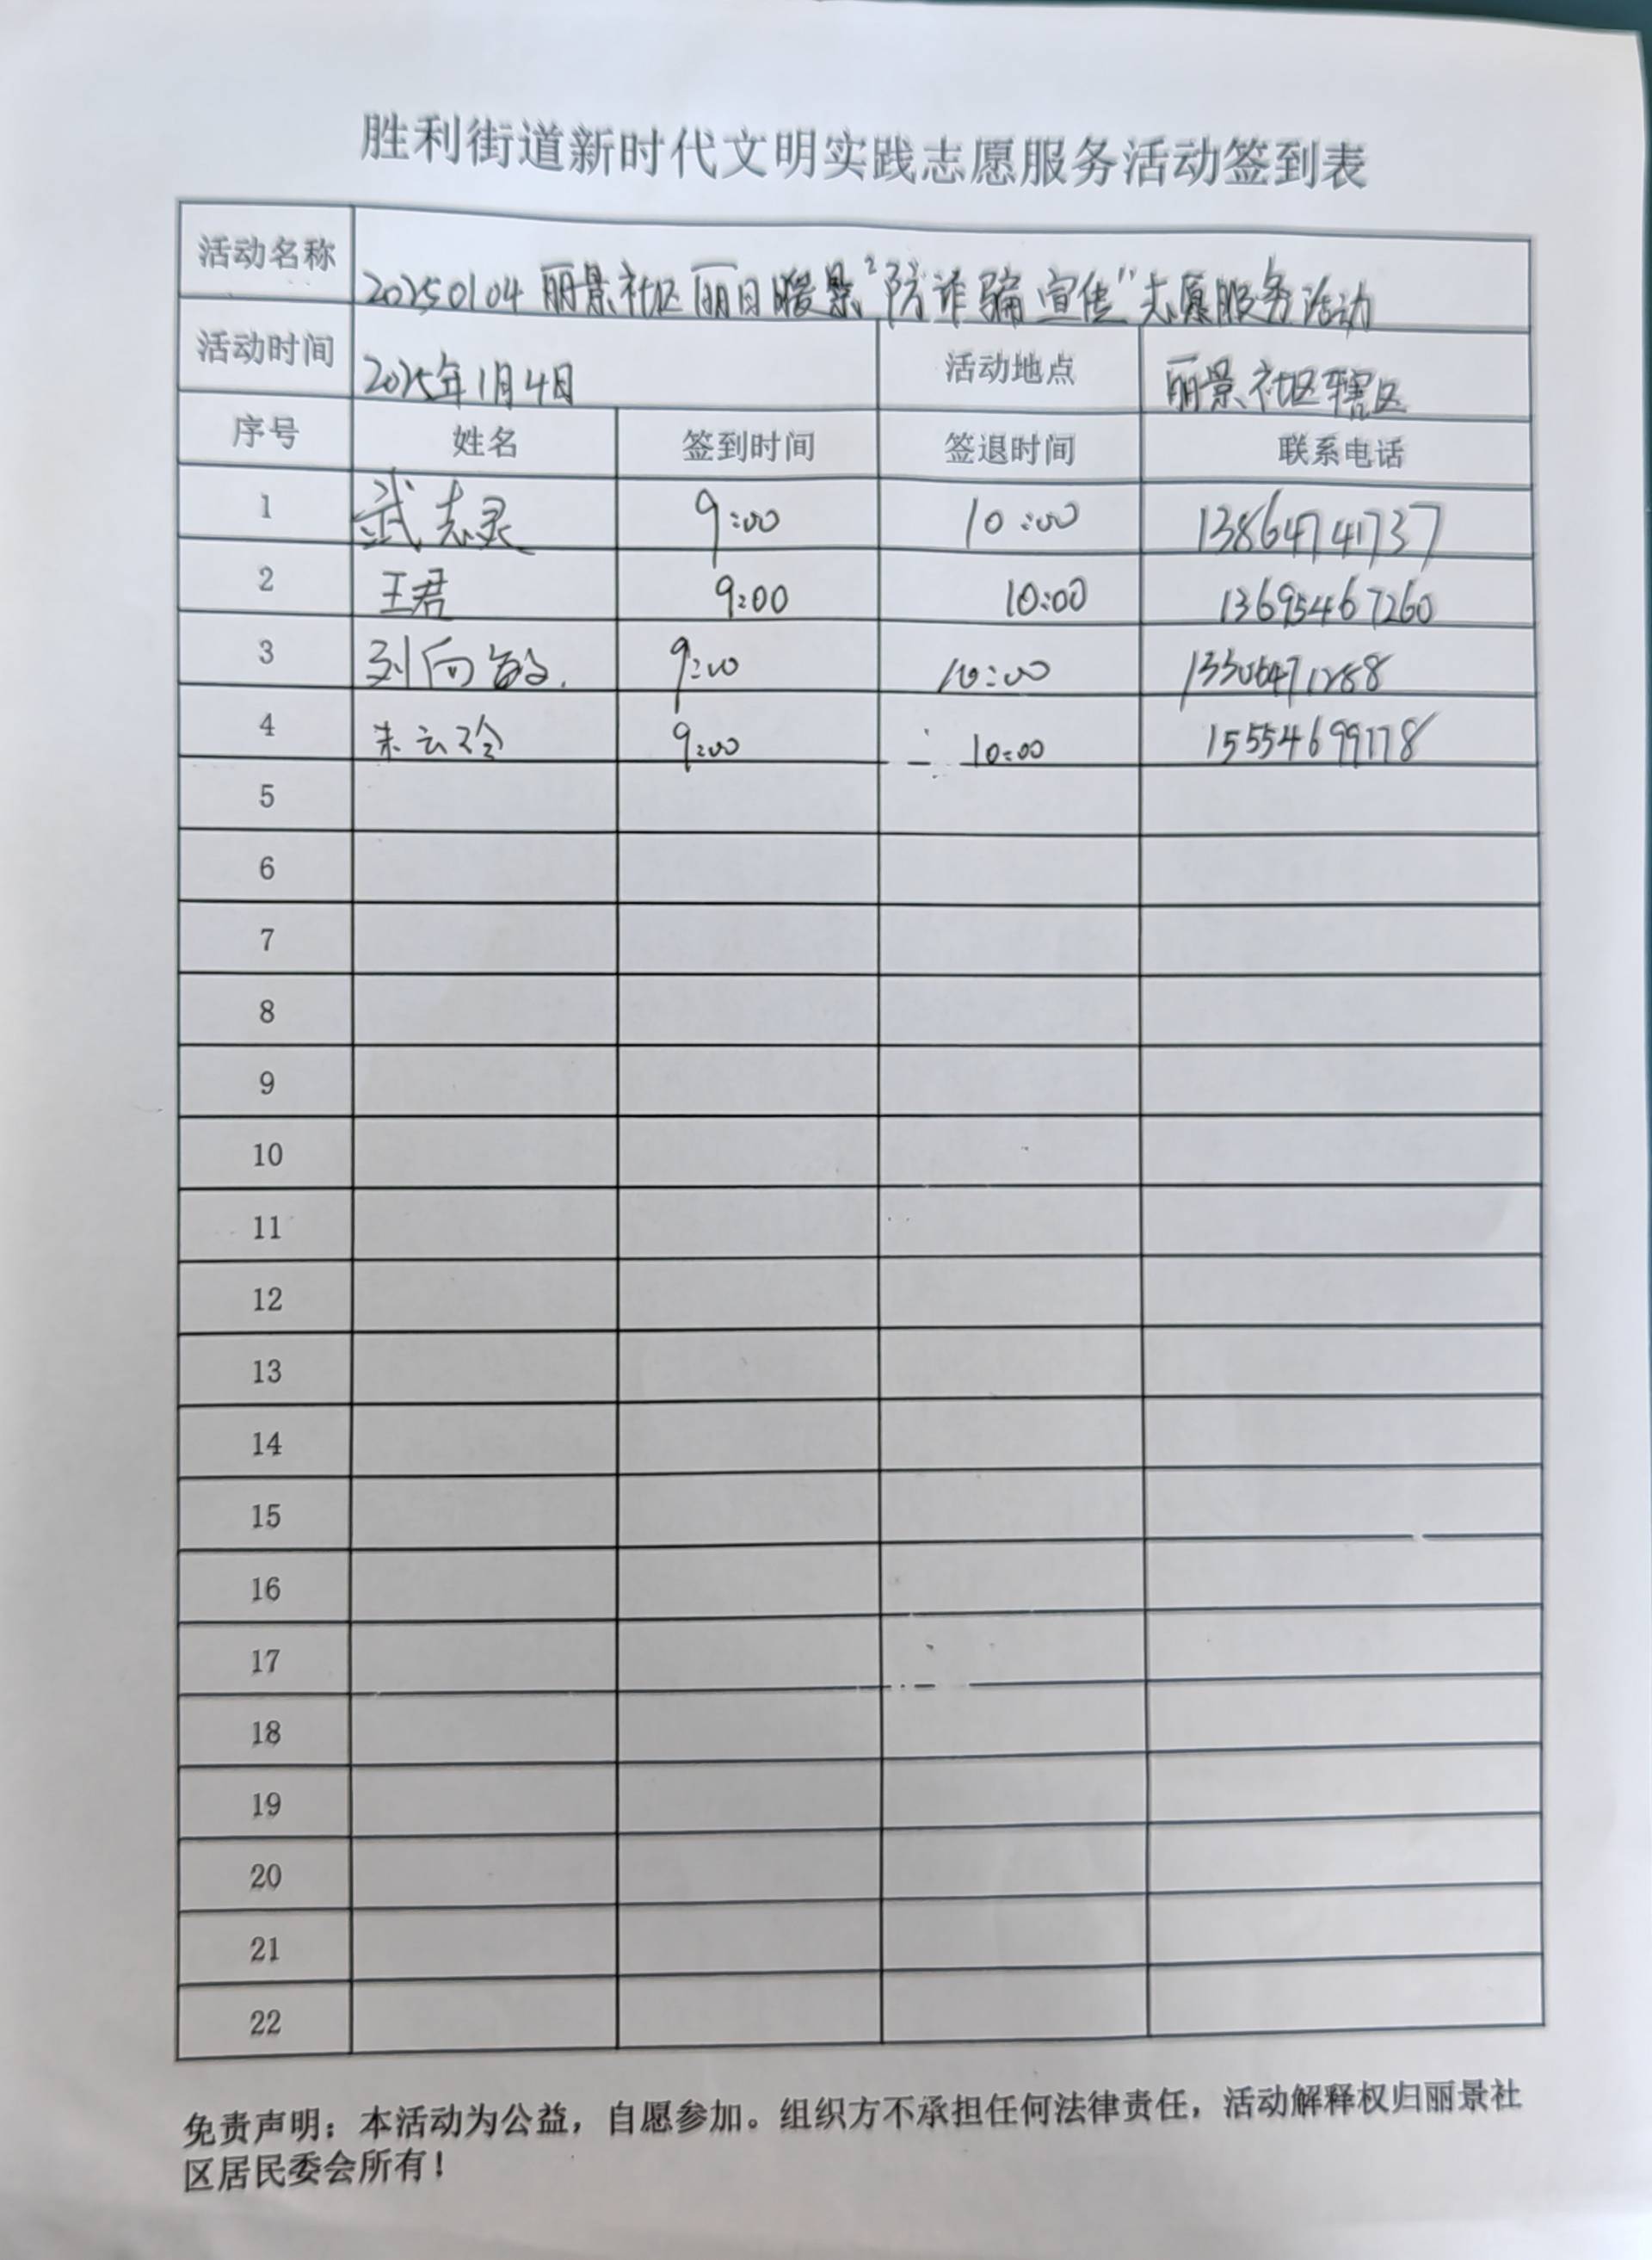 胜利街道新时代文明实践志愿服务活动签到表
活动名称 20250104丽景社区丽日暖景“防诈骗宣传”志愿服务活动
活动时间 2025年1月4日 活动地点 丽景社区辖区
序号 姓名 签到时间 签退时间 联系电话
1 武志灵 9:00 10:00 13864741737
2 王君 9:00 10:00 13695467260
3 刘向敏. 9:00 10:00
4 朱云玲 9:00 10:00 15554699178
5
6
7
8
9
10
11
12
13
14
15
16
17
18
19
20
21
22
免责声明：本活动为公益，自愿参加。组织方不承担任何法律责任，活动解释权归丽景社
区居民委会所有！